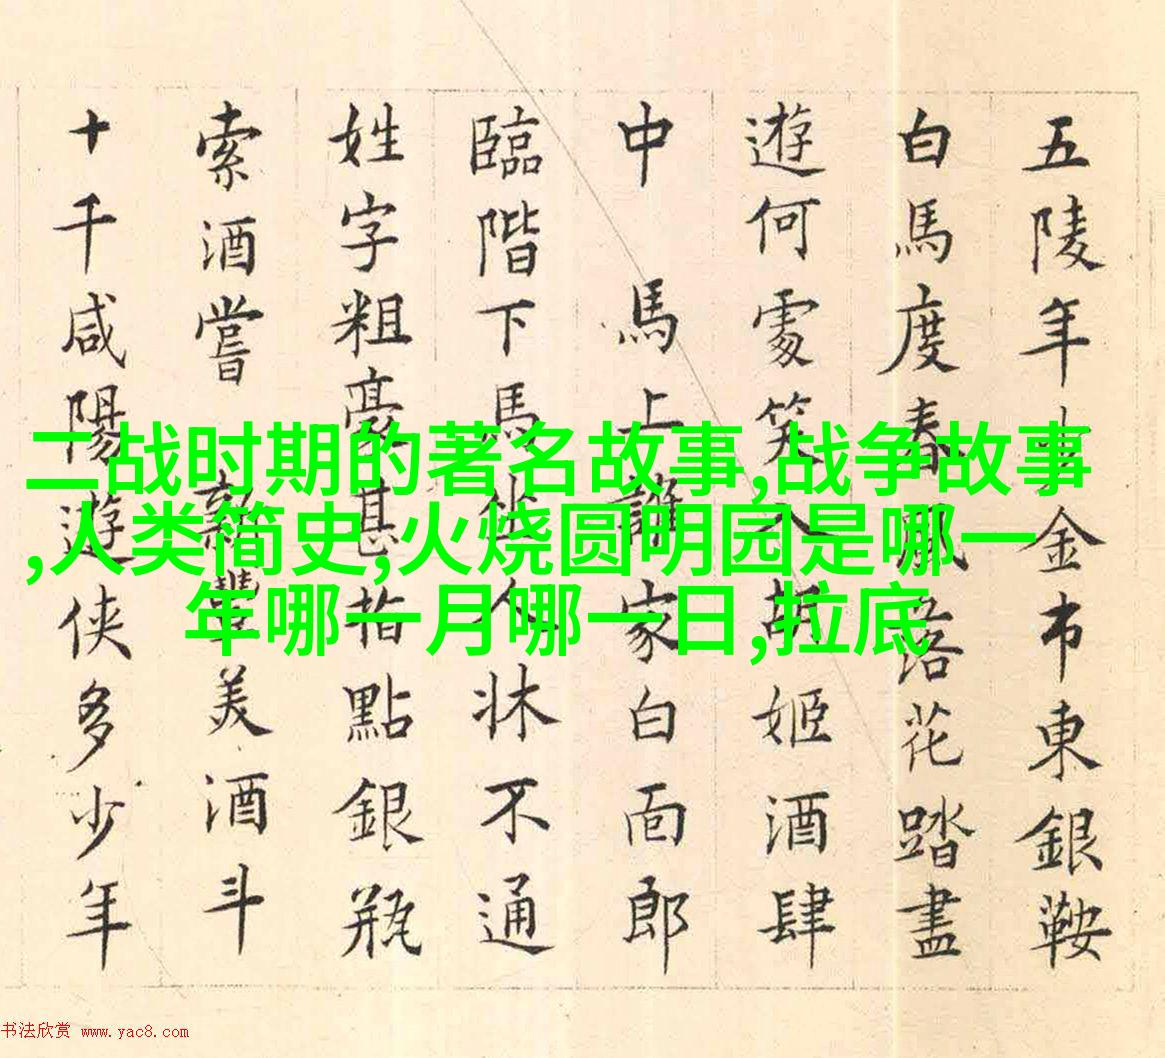 五陵年少金市東銀鞍
白馬度春風落花踏盡
遊何處笑入胡姬酒肆
中 馬上誰家白面郎
臨階下馬坐人牀不通
姓字粗豪甚指點銀瓶
索酒嘗 新豐美酒斗
十千咸陽遊俠多少年
二战时期的著名故事,战争故事
,人类简史,火烧圆明园是哪一
年哪一月哪一日,拉底
书法欣赏 www.yac8.com